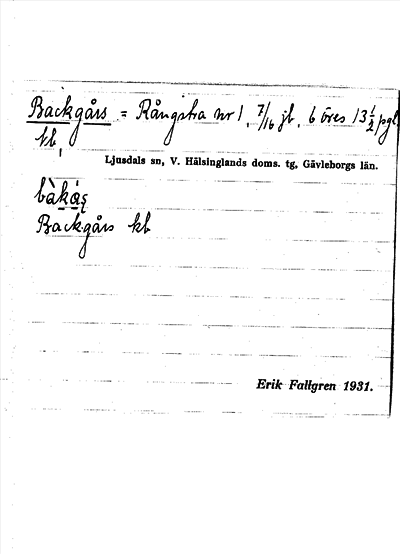 Backgårs = Rångsta nr 1, 7/16 jb, 6 öres 13 1/2 pgl
kb,
Ljusdals sn, V. Hälsinglands doms. tg, Gävleborgs län.
Backgårs kb
Erik Fallgren 1931.